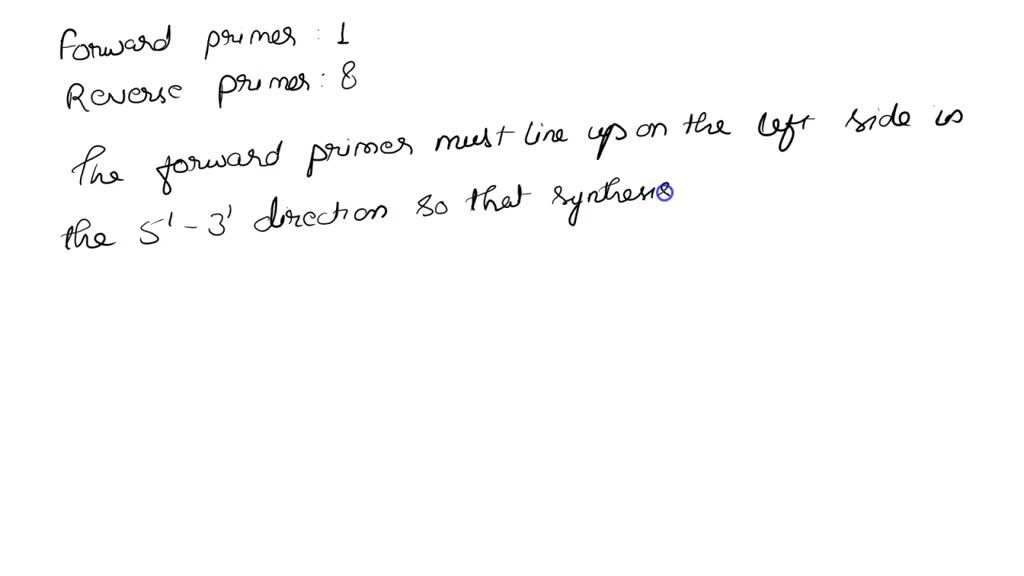 Forward primer : 1
Reverse primer : 8
The forward primer must line up on the left side in
the 5' - 3' direction so that synthesis